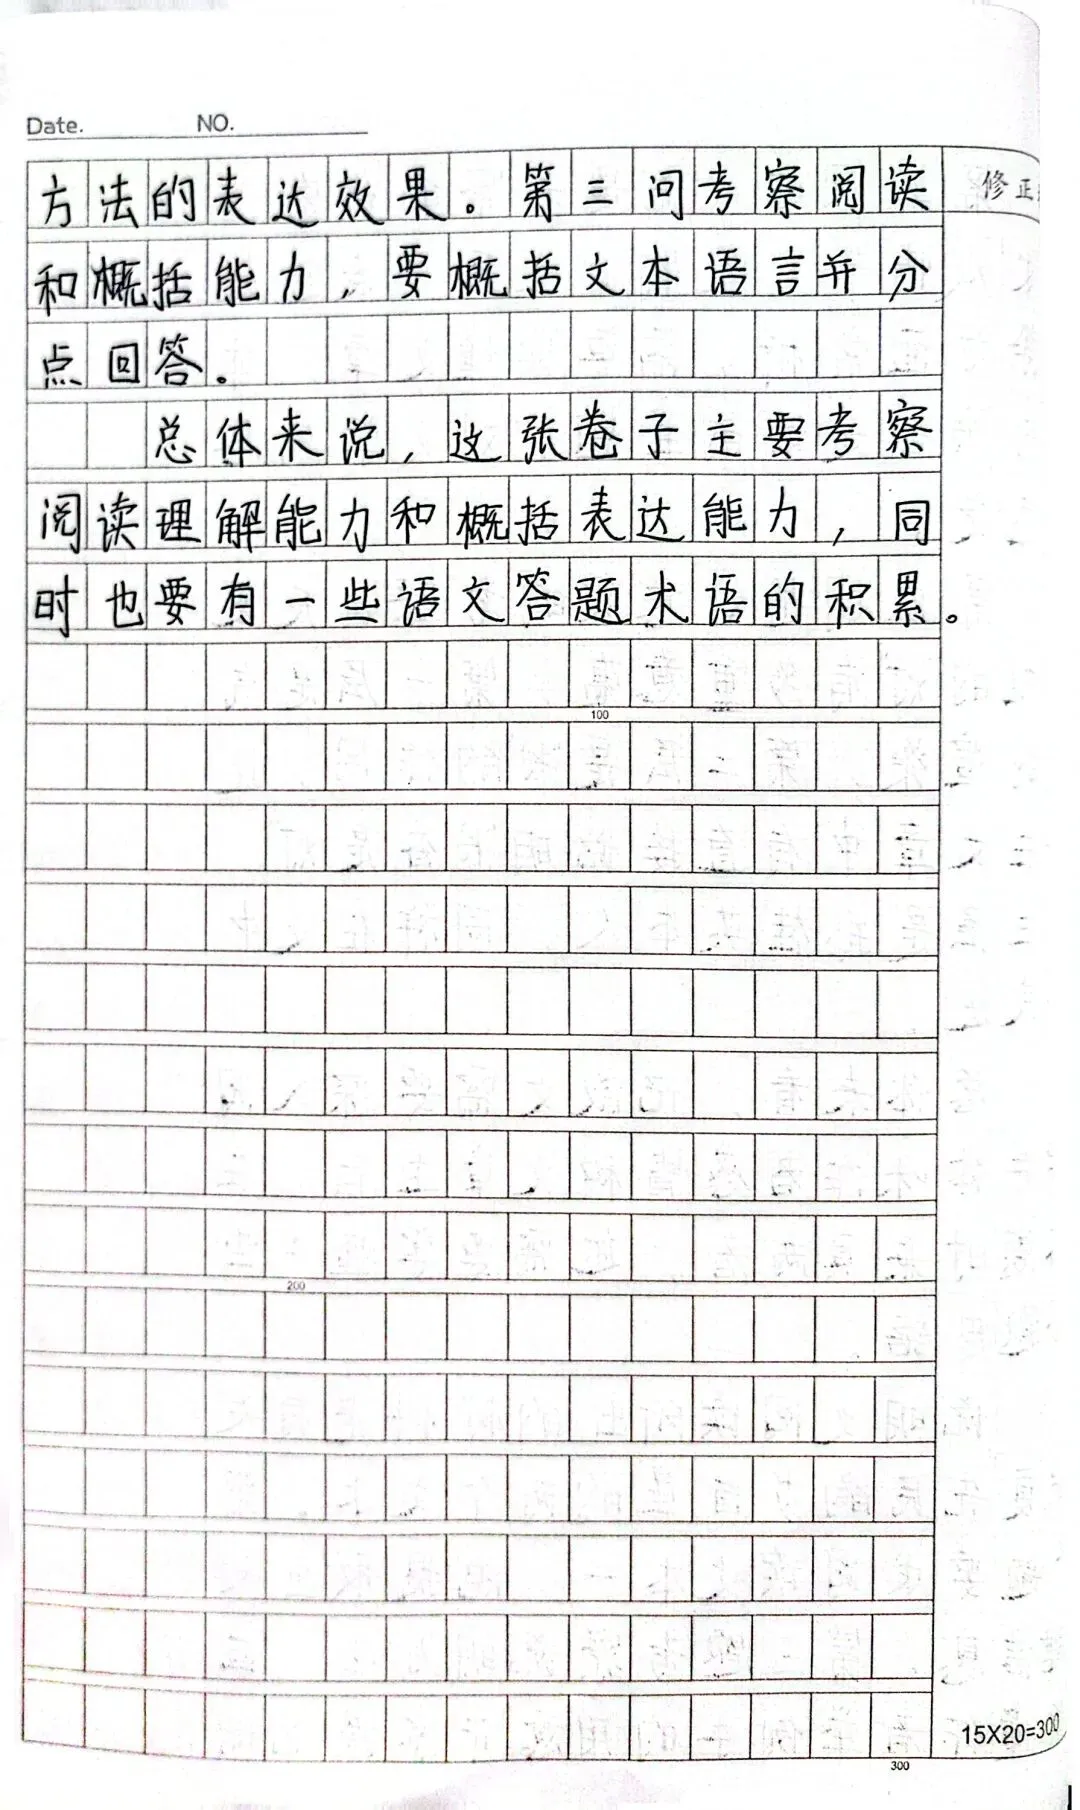 Date. NO.
方法的表达效果。第三问考察阅读
修正
和概括能力，要概括文本语言并分
点回答。
总体来说，这张卷子主要考察
阅读理解能力和概括表达能力，同
时也要有一些语文答题术语的积累。
100
200
15X20=300
300